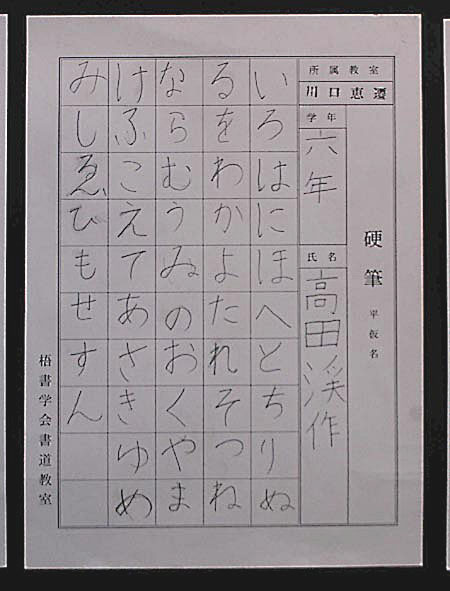 硬筆 平仮名
所属教室
川口恵遷
学年
六年
氏名
高田渓作
いろはにほへとちりぬ
るをわかよたれそつね
ならむうゐのおくやま
けふこえてあさきゆめ
みしゑひもせすん
梧書学会書道教室